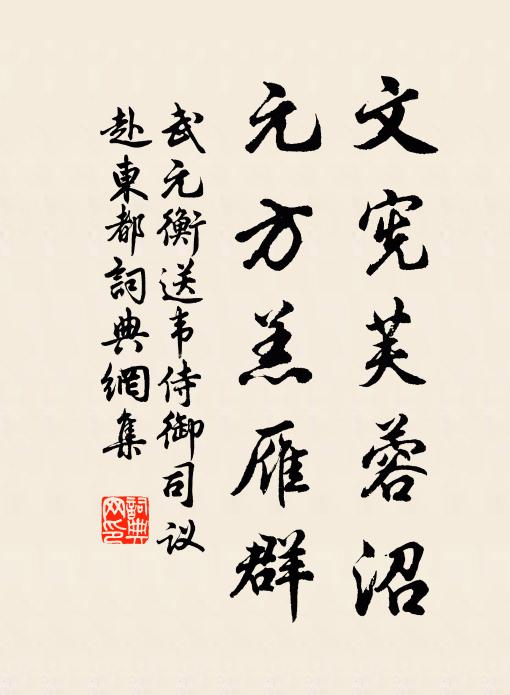 文宪芙蓉沼
元方羔雁群
武元衡送韦侍御司议
赴東都詞典網集
詞典网印